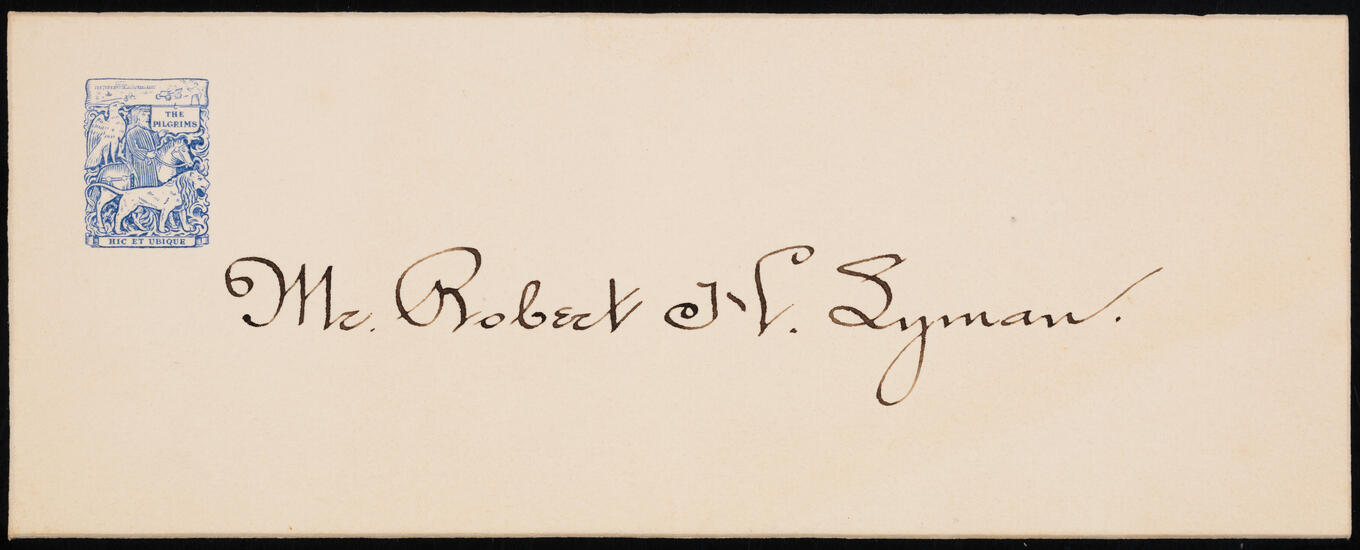 THE
PILGRIMS
HIC ET UBIQUE
Mr. Robert H. Lyman.